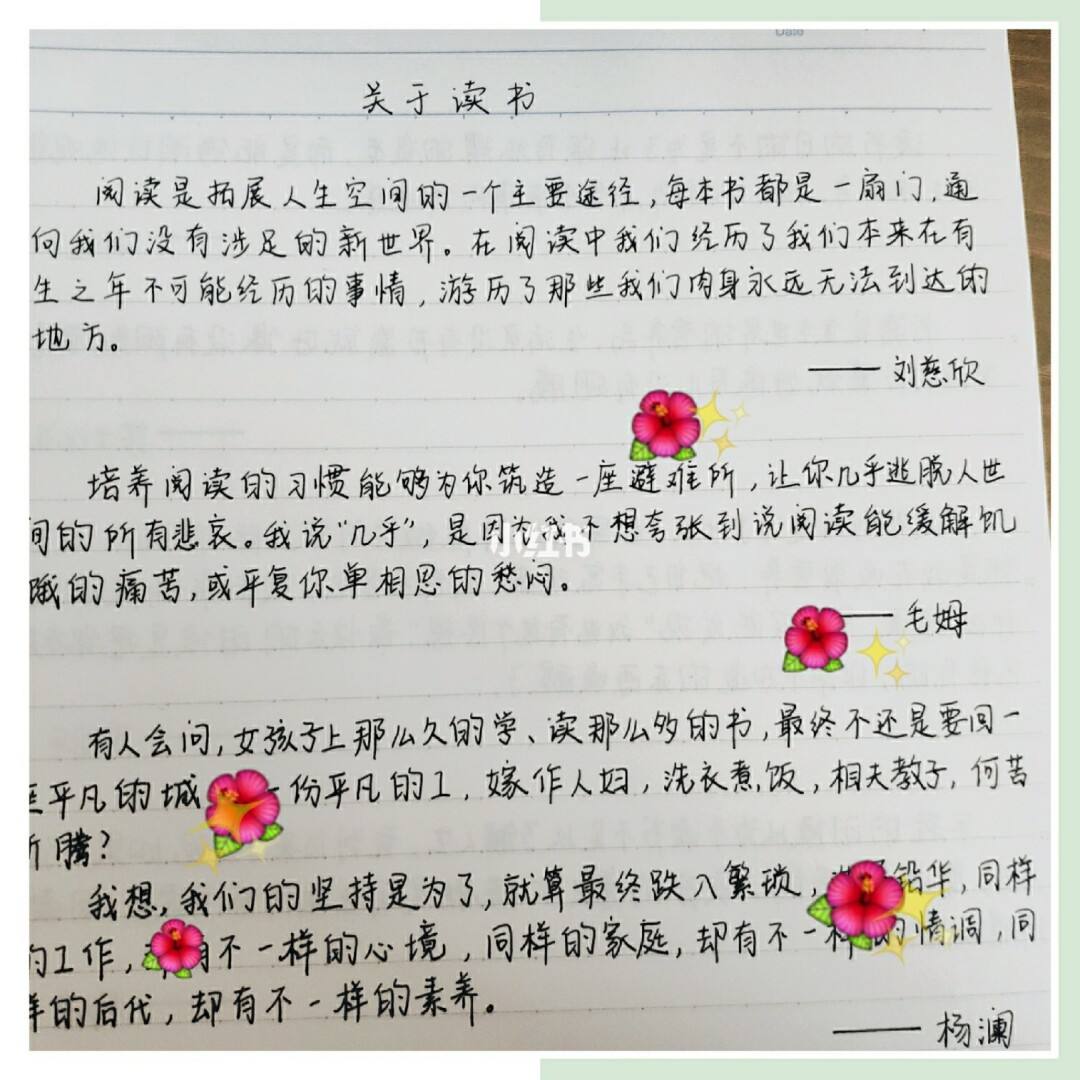 Date
关于读书
阅读是拓展人生空间的一个主要途径,每本书都是一扇门,通
向我们没有涉足的新世界。在阅读中我们经历了我们本来在有
生之年不可能经历的事情,游历了那些我们肉身永远无法到达的
地方。
——刘慈欣
培养阅读的习惯能够为你筑造一座避难所,让你几乎逃脱人世
间的所有悲哀。我说“几乎”,是因为我不想夸张到说阅读能缓解饥
饿的痛苦,或平复你单相思的愁闷。
小红书
——毛姆
有人会问,女孩子上那么久的学、读那么多的书,最终不还是要回一
座平凡的城 一份平凡的工,嫁作人妇,洗衣煮饭,相夫教子,何苦
折腾?
我想,我们的坚持是为了,就算最终跌入繁琐, 铅华,同样
的工作, 有不一样的心境,同样的家庭,却有不一样的情调,同
样的后代,却有不一样的素养。
——杨澜